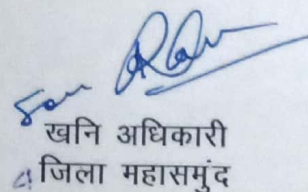 खनि अधिकारी
जिला महासमुंद